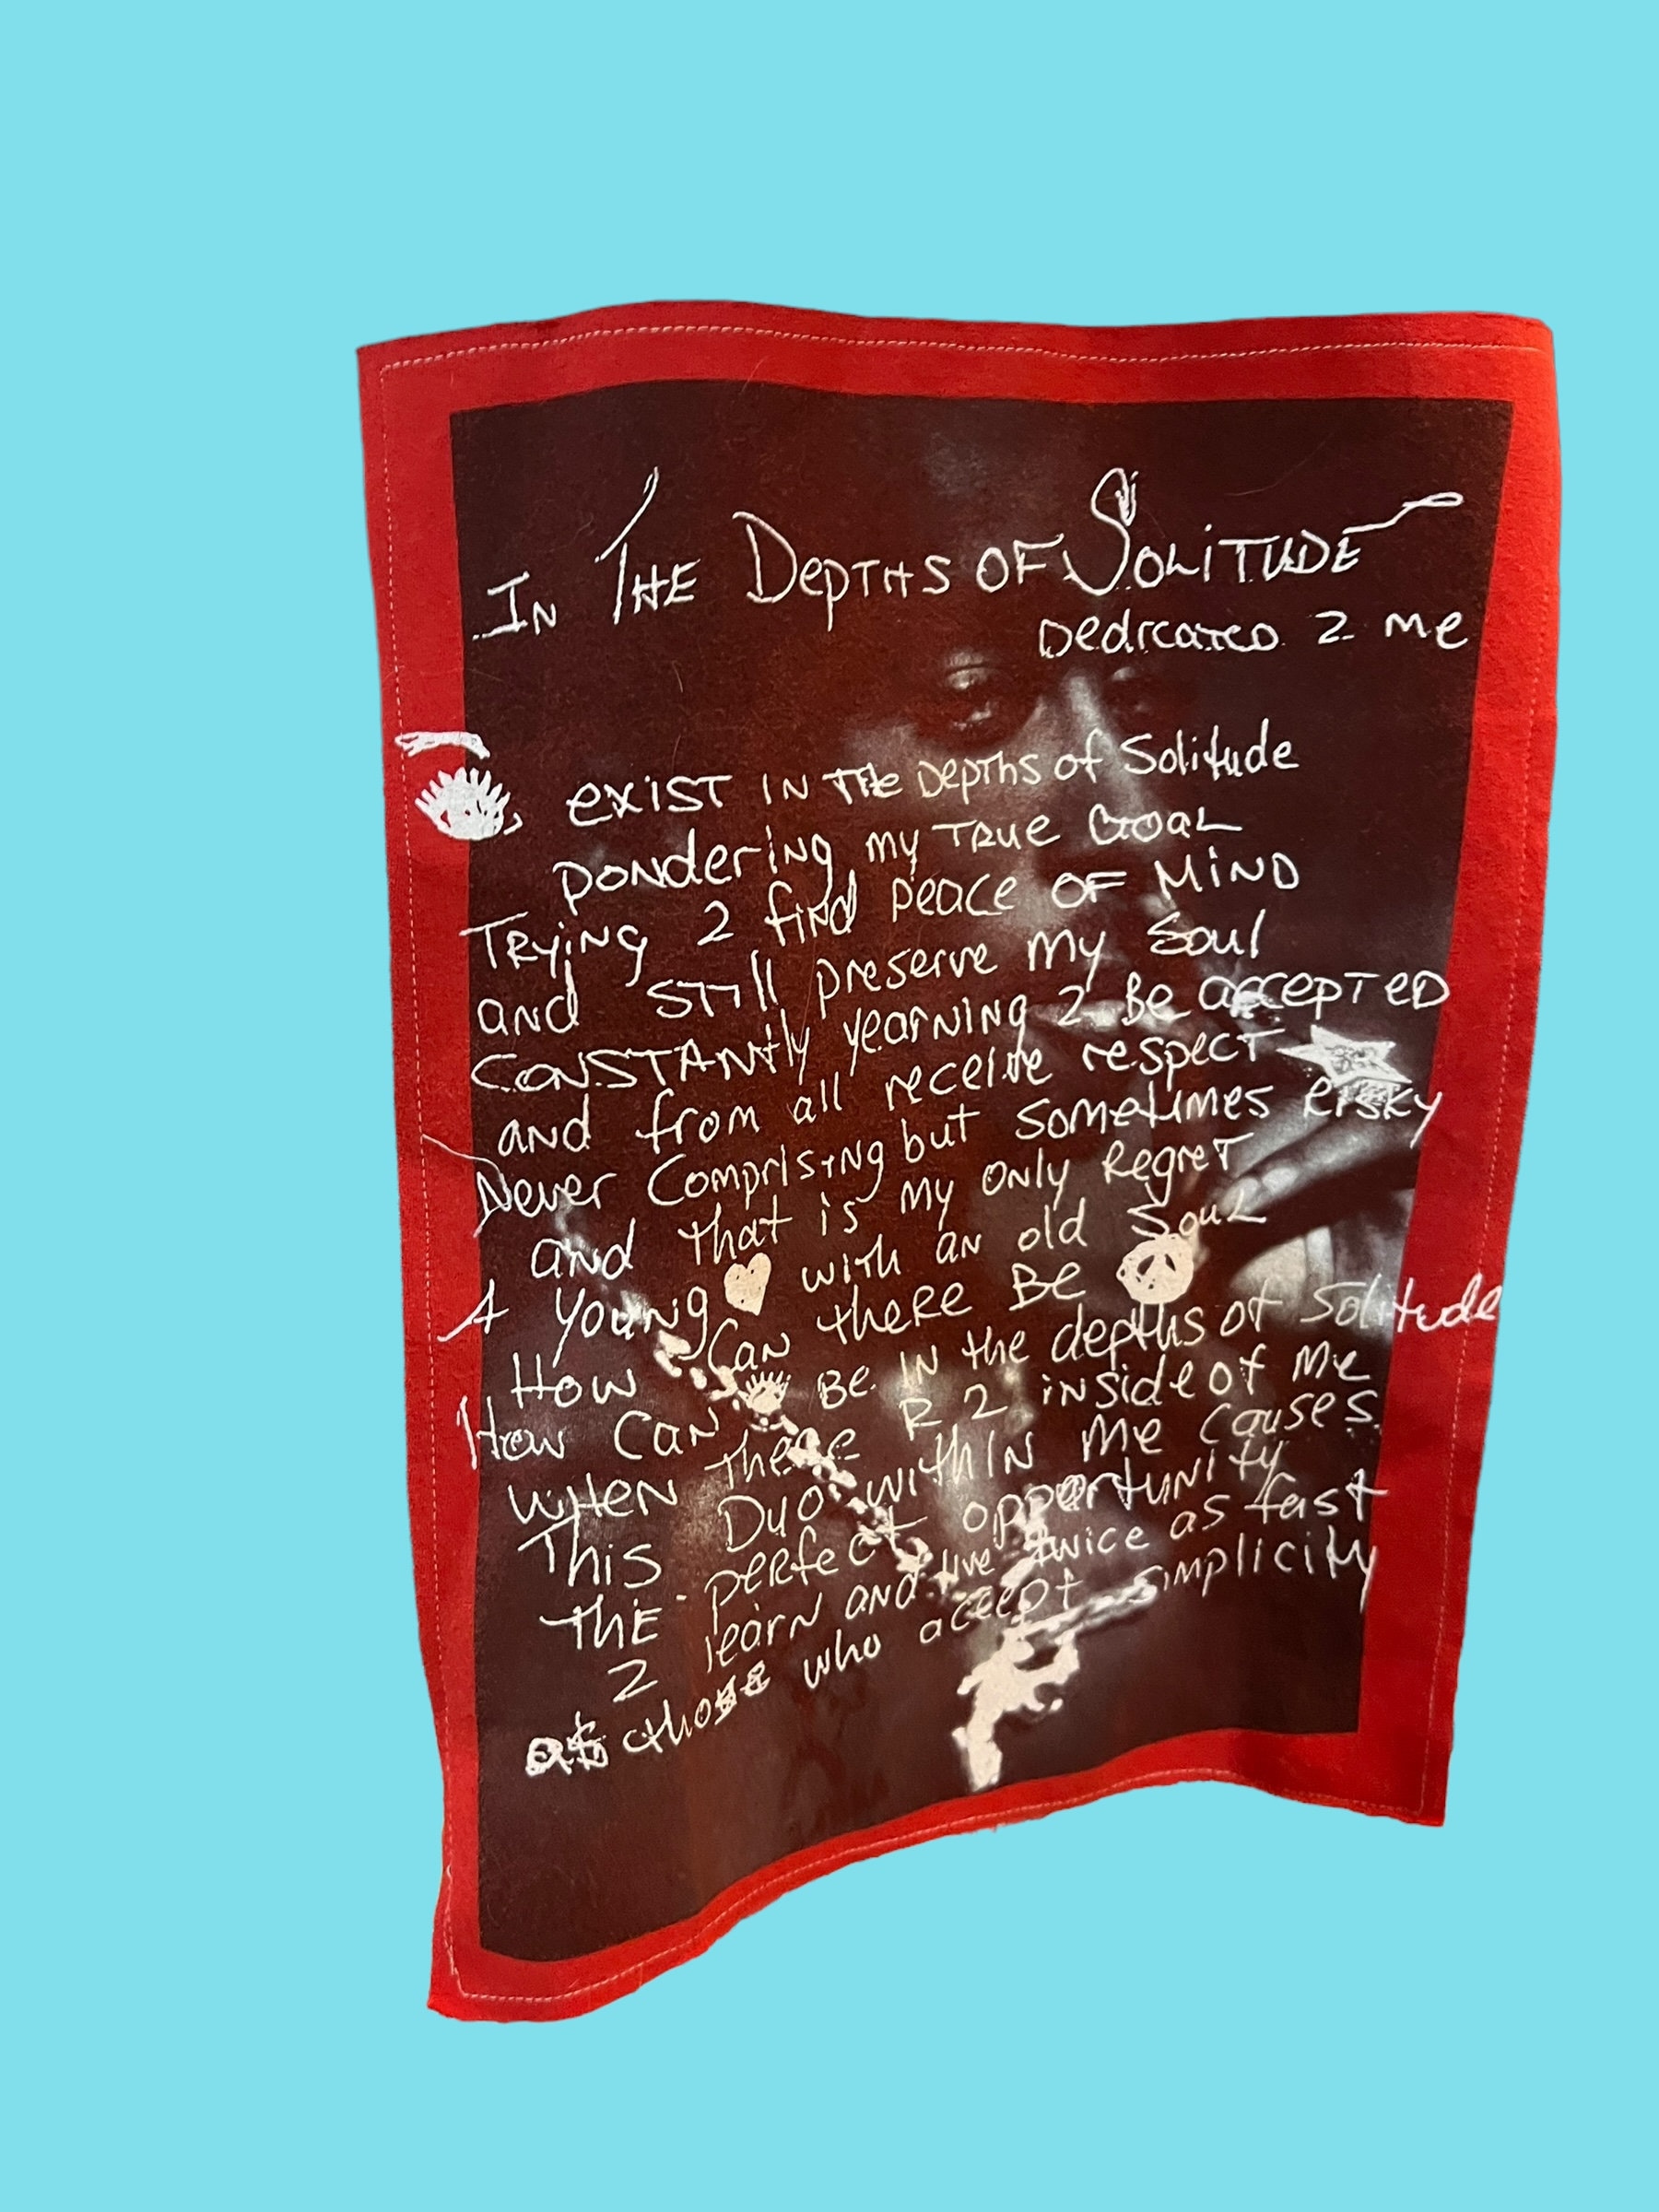 In The Depths of Solitude
Dedicated 2 me
exist in the Depths of Solitude
pondering my true Goal
Trying 2 find peace of mind
and still preserve my soul
constantly yearning 2 be accepted
and from all receive respect
Never comprising but sometimes risky
and that is my only regret
A young with an old soul
How can there be
How can be in the depths of solitude
when there R 2 inside of me
This Duo within me causes
the perfect opportunity
2 learn and live twice as fast
as those who accept simplicity